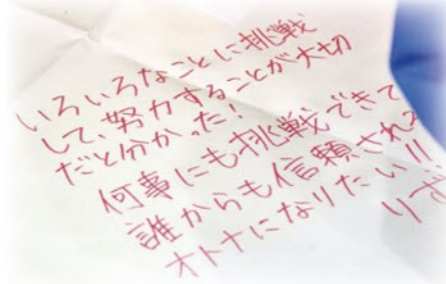 いろいろなことに挑戦
して、努力することが大切
だと分かった!
何事にも挑戦できて
誰からも信頼される
オトナになりたい!!
りず